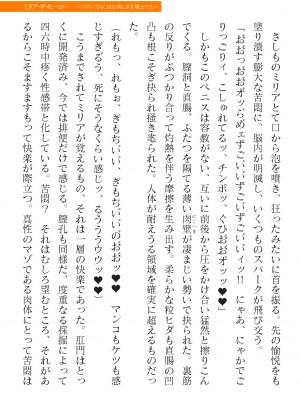 さしものミリアとて口から泡を噴き、狂ったみたいに首を振る。先の愉悦をも
塗り潰す膨大な苦悶に、脳内が明滅し、いくつものスパークが飛び交う。
「おおっおおオッらめェすごいィすごいいィッ!! にゃあ、にゃかでご
りっごりィ、こしゅれてるッ、チンポッ、ぐひおおオッッ♥♥」
しかもこのペニスは容赦がない。互いに前後から圧をかけ合い猛然と擦りこん
でくる。膣洞と直腸、ふたつを隔てる薄い肉壁が凄まじい勢いで抉られた。裏筋
の反りがぶつかり合って灼熱を伴う摩擦を生み出す。柔らかな粒ヒダも直腸の凹
凸も根こそぎ抉られ掻き毟られた。人体が耐えうる領域を確実に超えるものだっ
た。
「れもっ、れもぉ、ぎもちいい、ぎもちいいのおおッ♥♥ マンコもケツも感
じすぎるう、死にそうなくらい感じッ、るううううウウッッ♥♥」
こうまでされてミリアが覚えるもの、それは一層の快楽であった。肛門はとっ
くに開発済み、今では排便だけで感じる。膣孔も同様だ、度重なる採掘によって
四六時中疼く性感帯と化している。苦悶? それはむしろ望むところ、それがあ
るからこそますますもって快楽が際立つ。真性のマゾである肉体にとって苦悶は